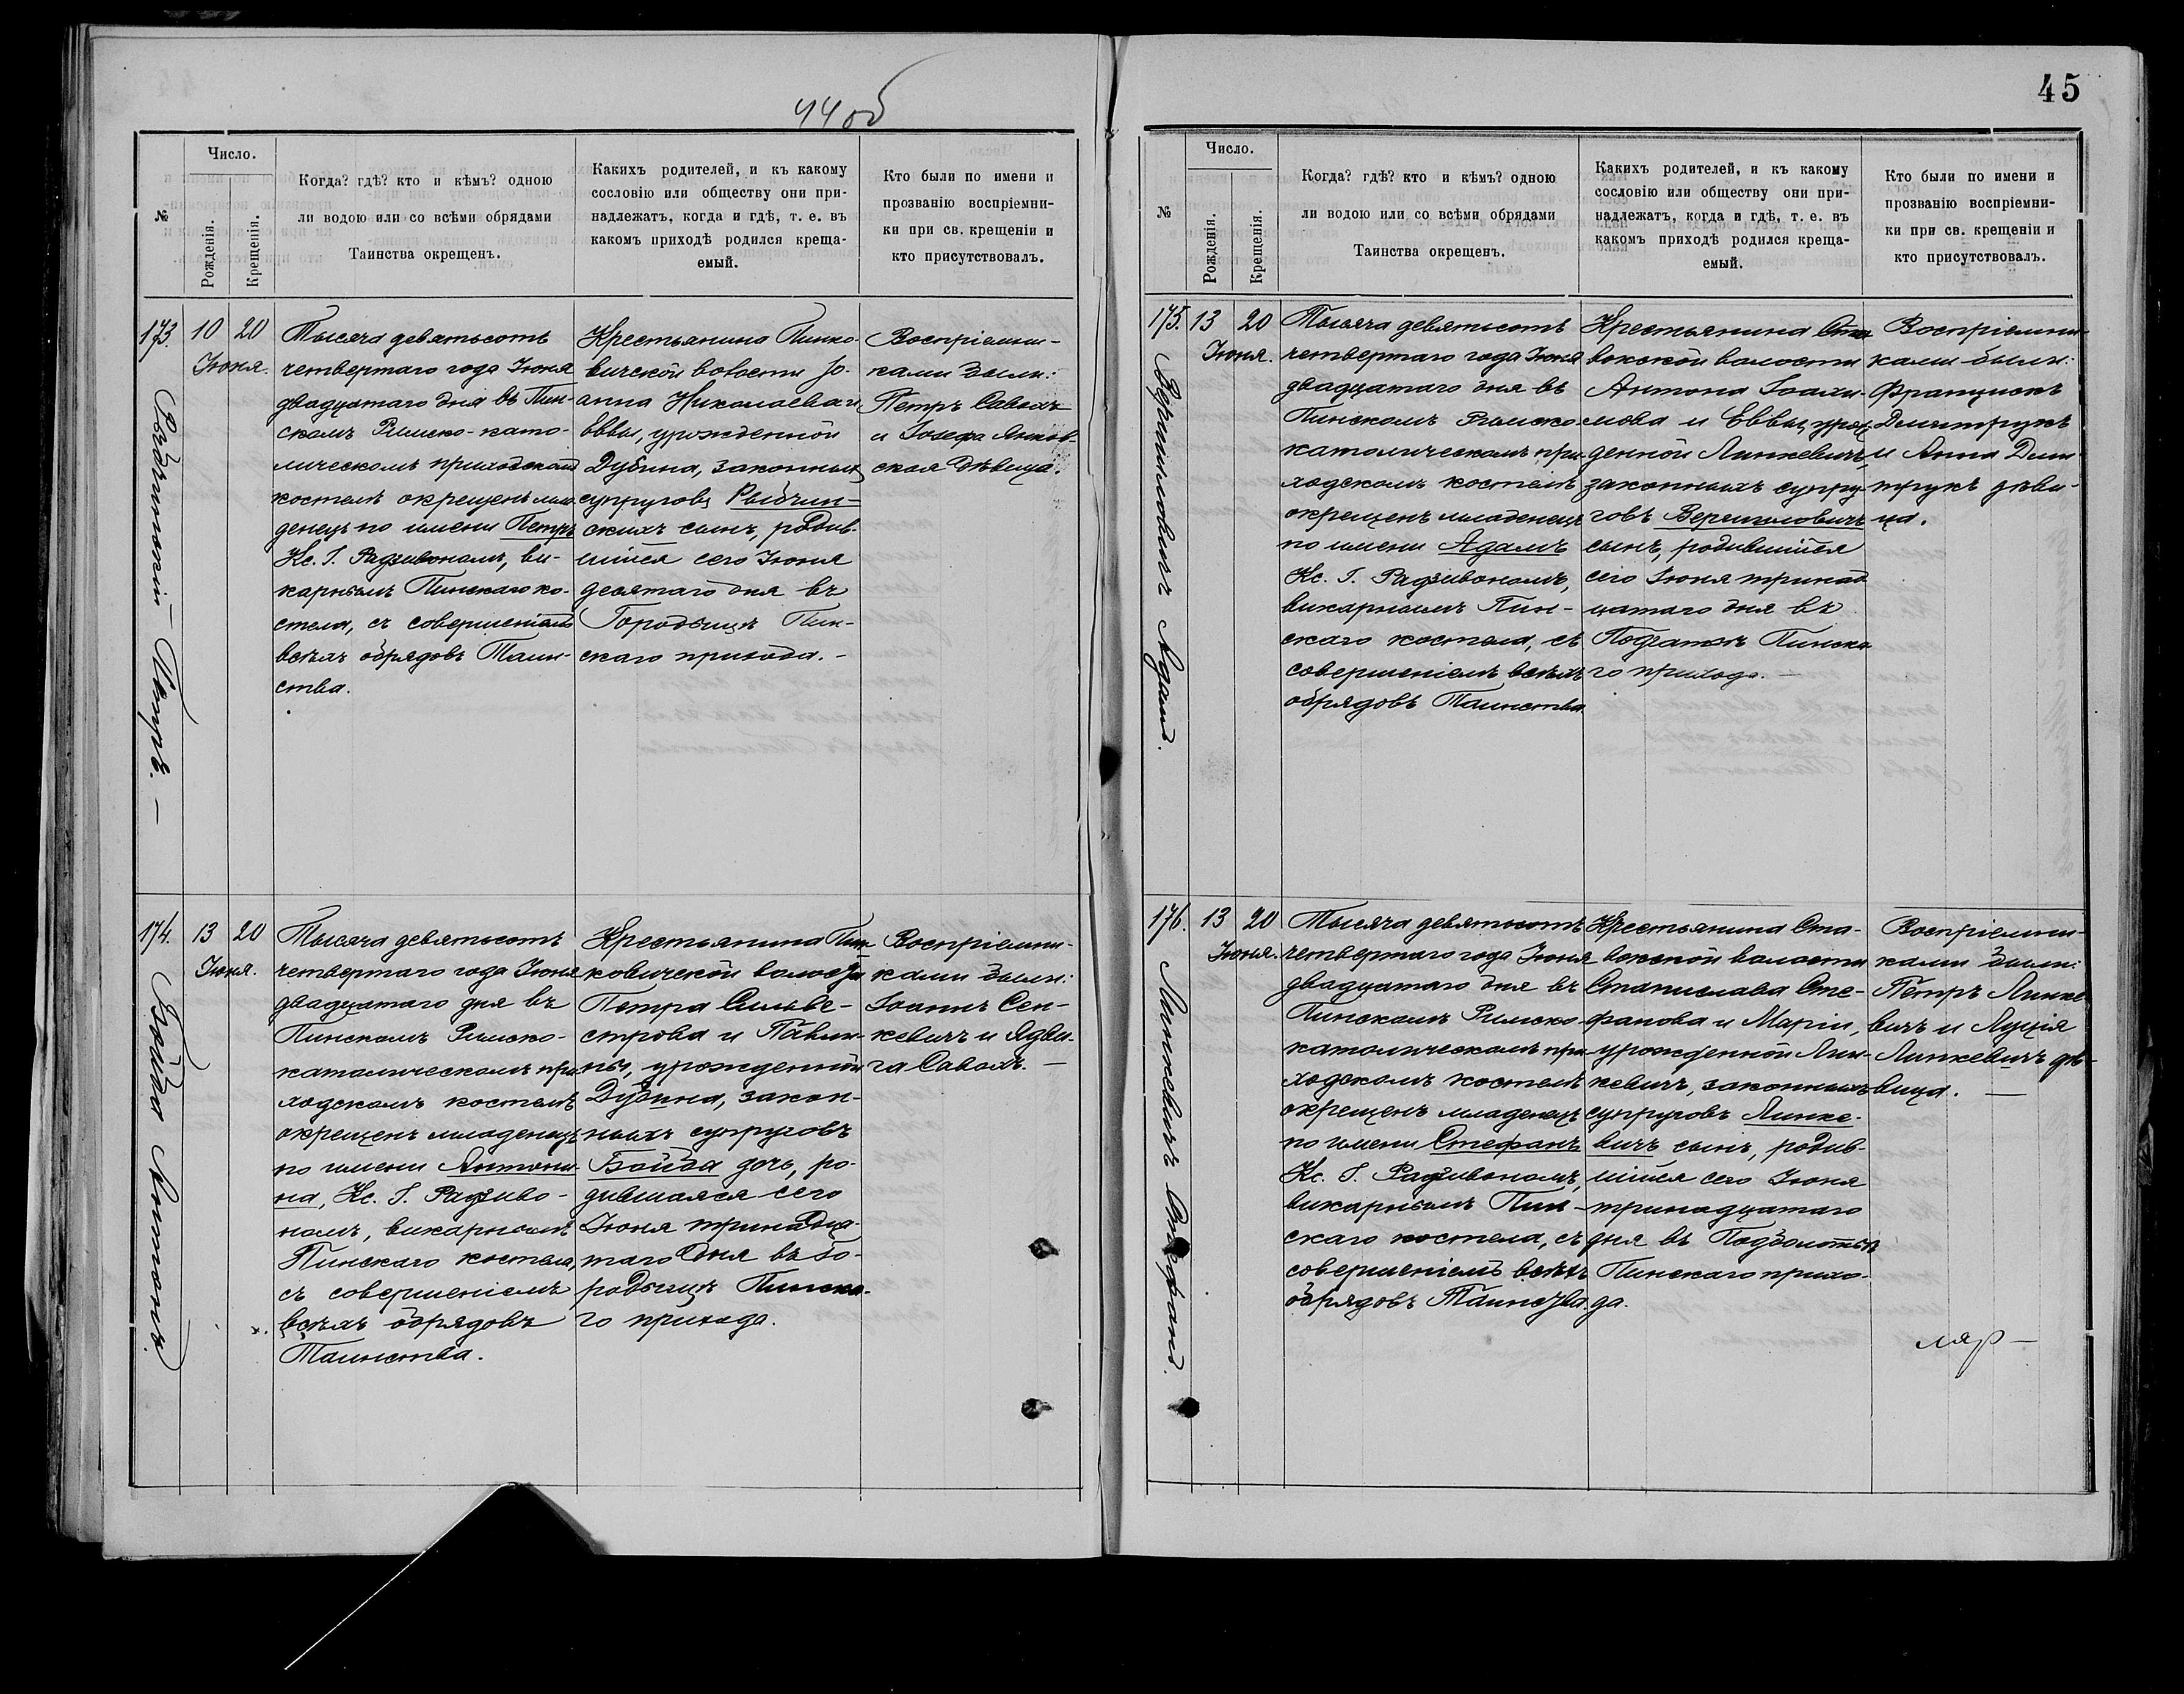 44 об
№
Число.
Рожденія.
Крещенія.
Когда? гдѣ? кто и кѣмъ? одною
ли водою или со всѣми обрядами
Таинства окрещенъ.
Какихъ родителей, и къ какому
сословію или обществу они при-
надлежатъ, когда и гдѣ, т. е. въ
какомъ приходѣ родился креща-
емый.
Кто были по имени и
прозванію воспріемни-
ки при св. крещеніи и
кто присутствовалъ.
173.
Петръ. —
10 20
Іюня.
Тысяча девятьсотъ
четвертаго года Іюня
двадцатаго дня въ Пин-
скомъ Римско-като-
лическомъ приходскомъ
костелѣ окрещенъ мла-
денецъ по имени Петръ
Кс. І. Радзивономъ, ви-
карнымъ Пинскаго ко-
стела, съ совершеніемъ
всѣхъ обрядовъ Таин-
ства.
Крестьянина Пинко-
вичской волости Іо-
анна Николаева и
Еввы, урожденной
Дубина, законныхъ
супруговъ Рыдчин-
скихъ сынъ, родив-
шійся сего Іюня
десятаго дня въ
Городыщѣ Пин-
скаго прихода. —
Воспріемни-
ками были:
Петръ Савохъ
и Іозефа Янков-
ская дѣвица.
174.
Бойда Антони
13 20
Іюня.
Тысяча девятьсотъ
четвертаго года Іюня
двадцатаго дня въ
Пинскомъ Римско-
католическомъ при-
ходскомъ костелѣ
окрещенъ младенецъ
по имени Антони-
на, Кс. І. Радзиво-
номъ, викарнымъ
Пинскаго костела,
съ совершеніемъ
всѣхъ обрядовъ
Таинства.
Крестьянина Пин-
ковичской волости
Петра Сильве-
строва и Павли-
ны, урожденной
Дубина, закон-
ныхъ супруговъ
Бойда дочь, ро-
дившаяся сего
Іюня тринадца-
таго дня въ Го-
родыщѣ Пинска-
го прихода.
Воспріемни-
ками были:
Іоаннъ Сен-
кевичъ и Ядви-
га Савохъ. —
45
№
Число.
Рожденія.
Крещенія.
Когда? гдѣ? кто и кѣмъ? одною
ли водою или со всѣми обрядами
Таинства окрещенъ.
Какихъ родителей, и къ какому
сословію или обществу они при-
надлежатъ, когда и гдѣ, т. е. въ
какомъ приходѣ родился креща-
емый.
Кто были по имени и
прозванію воспріемни-
ки при св. крещеніи и
кто присутствовалъ.
175.
Веришловичъ Адамъ.
13 20
Іюня.
Тысяча девятьсотъ
четвертаго года Іюня
двадцатаго дня въ
Пинскомъ Римско-
католическомъ при-
ходскомъ костелѣ
окрещенъ младенецъ
по имени Адамъ
Кс. І. Радзивономъ,
викарнымъ Пин-
скаго костела, съ
совершеніемъ всѣхъ
обрядовъ Таинства.
Крестьянина Ста-
вокской волости
Антона Іоахи-
мова и Еввы, урож-
денной Линкевичъ,
законныхъ супру-
говъ Веришловичъ
сынъ, родившійся
сего Іюня тринад-
цатаго дня въ
Пинска-
го прихода. —
Воспріемни-
ками были:
Францискъ
Дмитрукъ
и Анна Дми-
трукъ дѣви-
ца.
176.
Линкевичъ Стефанъ.
13 20
Іюня.
Тысяча девятьсотъ
четвертаго года Іюня
двадцатаго дня въ
Пинскомъ Римско-
католическомъ при-
ходскомъ костелѣ
окрещенъ младенецъ
по имени Стефанъ
Кс. І. Радзивономъ,
викарнымъ Пин-
скаго костела, съ
совершеніемъ всѣхъ
обрядовъ Таинства.
Крестьянина Ста-
вокской волости
Станислава Сте-
фанова и Маріи,
урожденной Лин-
кевичъ, законныхъ
супруговъ Линке-
вичъ сынъ, родив-
шійся сего Іюня
тринадцатаго
дня въ Подболотьѣ
Пинскаго прихо-
да.
Воспріемни-
ками были:
Петръ Линке-
вичъ и Луція
Линкевичъ дѣ-
вица. —